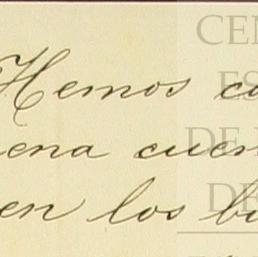 Hemos co
ena cuen
en los bu
CEN
ES
DE
DE